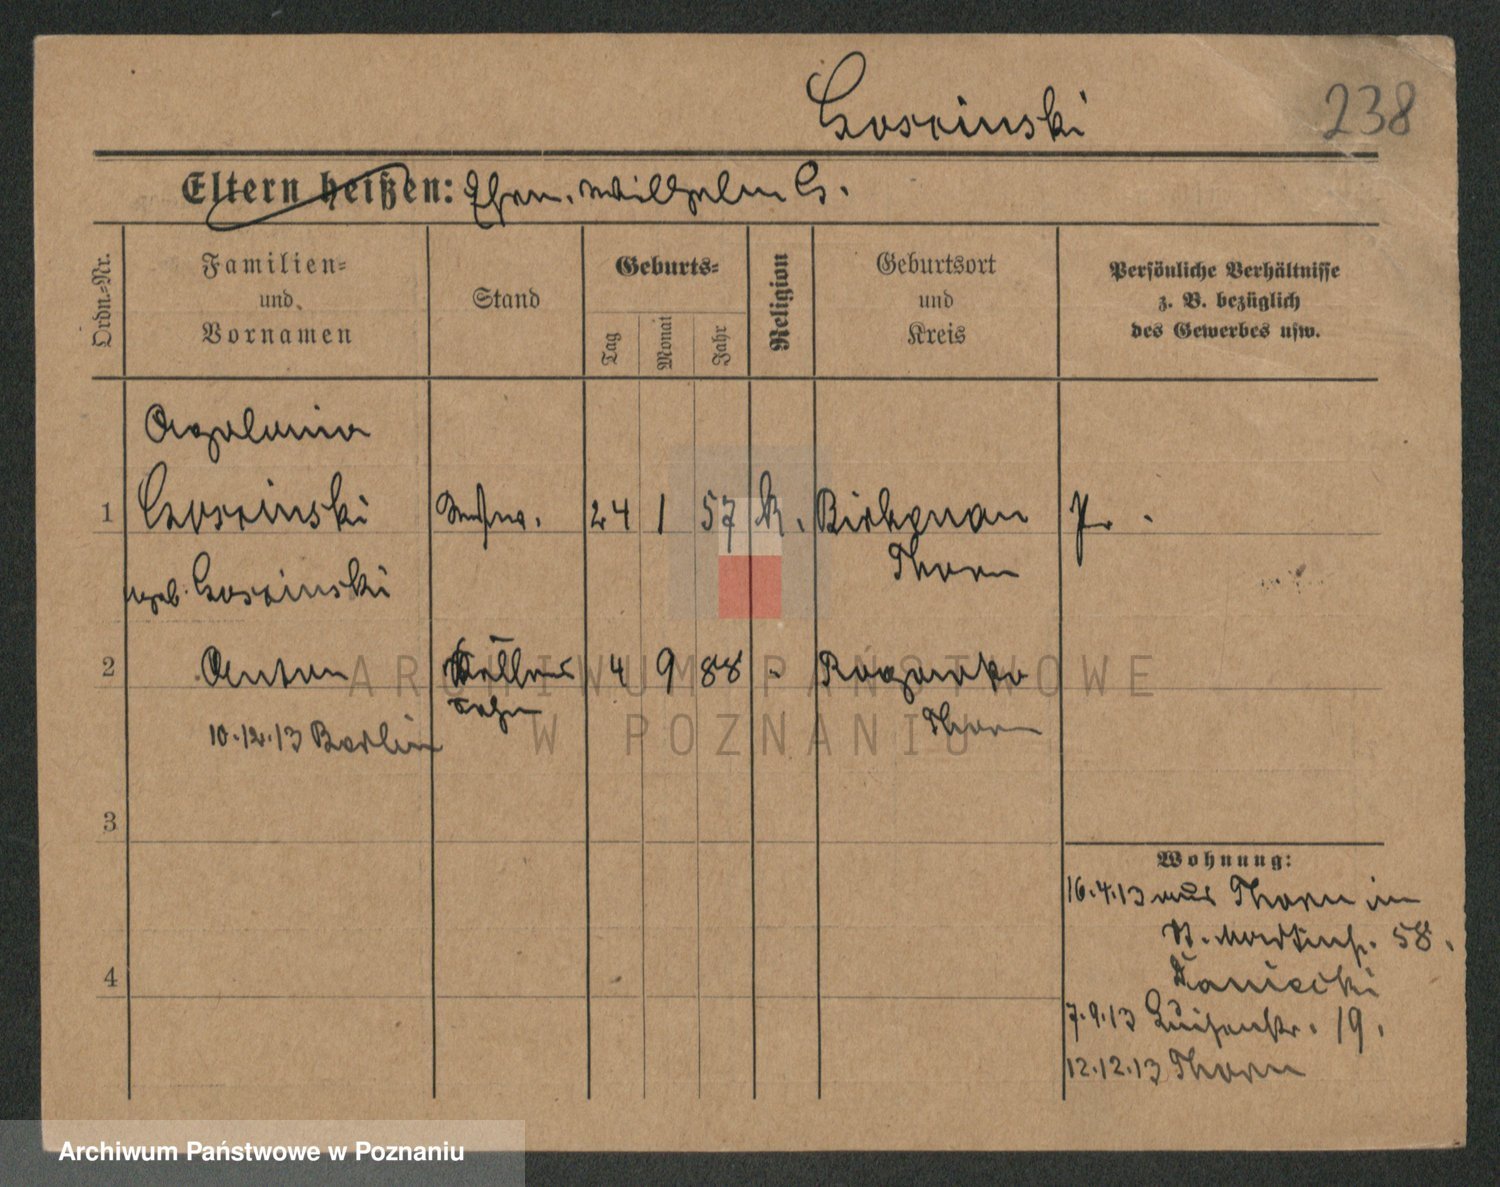 238
Eltern heißen: Ehem. Wilhelm G.
Ordn.-Nr.
Familien-
und
Vornamen
Stand
Geburts-
Tag
Monat
Jahr
Religion
Geburtsort
und
Kreis
Persönliche Verhältnisse
z. B. bezüglich
des Gewerbes usw.
Apolonia
1 24 1 57 k. Birkenau Pr.
Thorn
geb.
2 Anton Kellner 4 9 88 " Rogowko
Thorn
10.12.13 Berlin
3
4
Wohnung:
16.4.13 aus Thorn in
St. Martinstr. 58.
Daniecki
7.9.13 Luisenstr. 19.
12.12.13 Thorn
ARCHIWUM PAŃSTWOWE
W POZNANIU
Archiwum Państwowe w Poznaniu